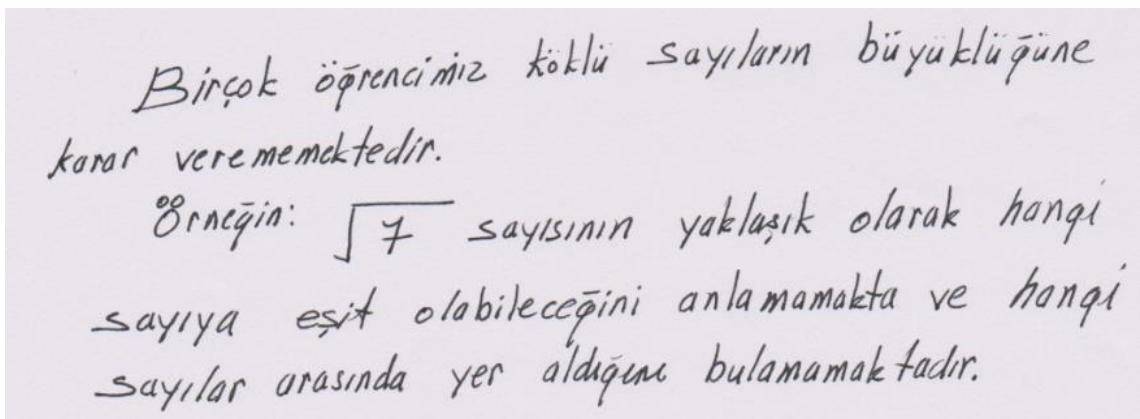 Birçok öğrencimiz köklü sayıların büyüklüğüne
karar verememektedir.
Örneğin: √7 sayısının yaklaşık olarak hangi
sayıya eşit olabileceğini anlamamakta ve hangi
sayılar arasında yer aldığını bulamamaktadır.